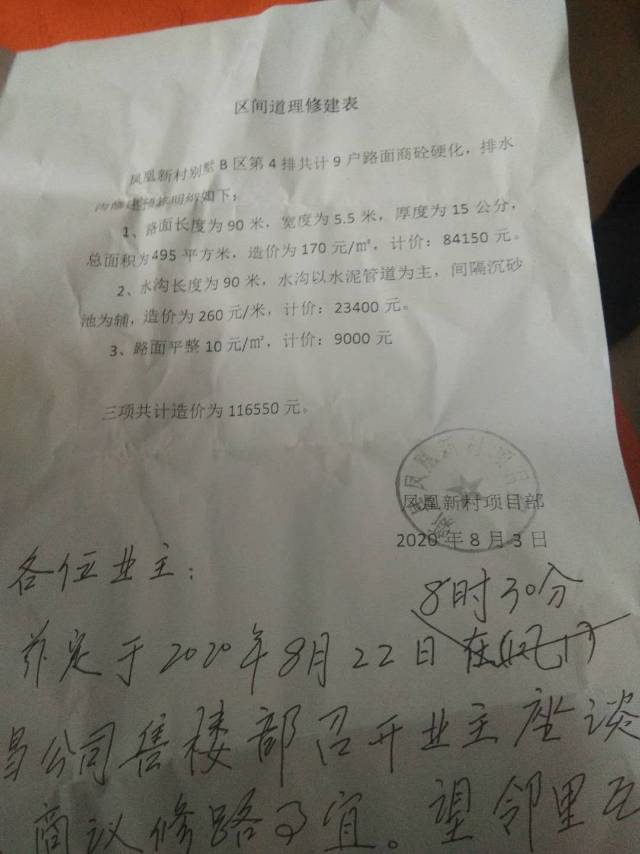 区间道理修建表
凤凰新村别墅 B 区第 4 排共计 9 户路面商砼硬化，排水
沟修建预算明细如下；
1、路面长度为 90 米，宽度为 5.5 米，厚度为 15 公分，
总面积为495 平方米，造价为 170 元/㎡，计价：84150 元。
2、水沟长度为 90 米，水沟以水泥管道为主，间隔沉砂
池为辅，造价为 260 元/米，计价：23400 元。
3、路面平整 10 元/㎡，计价：9000 元
三项共计造价为 116550 元。
凤凰新村项目部
2020 年 8 月 3 日
各位业主：
8时30分
兹定于2020年8月22日在
昌公司售楼部召开业主座谈
商议修路事宜。望邻里互